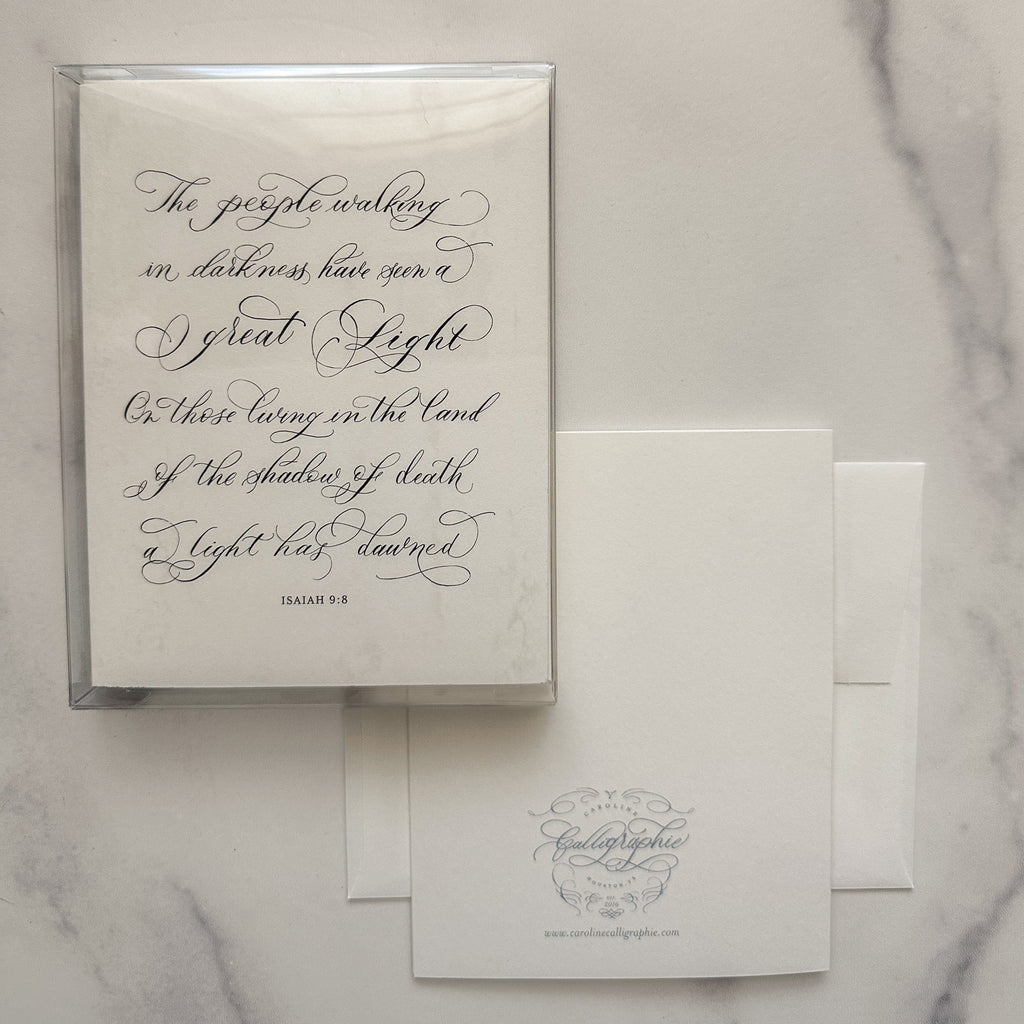 The people walking
in darkness have seen a
great Light
On those living in the land
of the shadow of death
a light has dawned
ISAIAH 9:8
CAROLINE
Calligraphie
HOUSTON, TX
EST.
2016
www.carolinecalligraphie.com